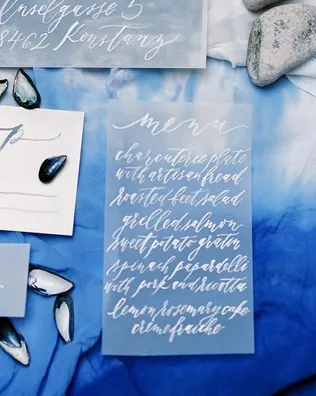 Inselgasse 5
78462 Konstanz
menu
charcuterie plate
with artisan bread
roasted beet salad
grilled salmon
sweet potato gratin
spinach papardelle
with pork and ricotta
lemon rosemary cake
crème fraiche